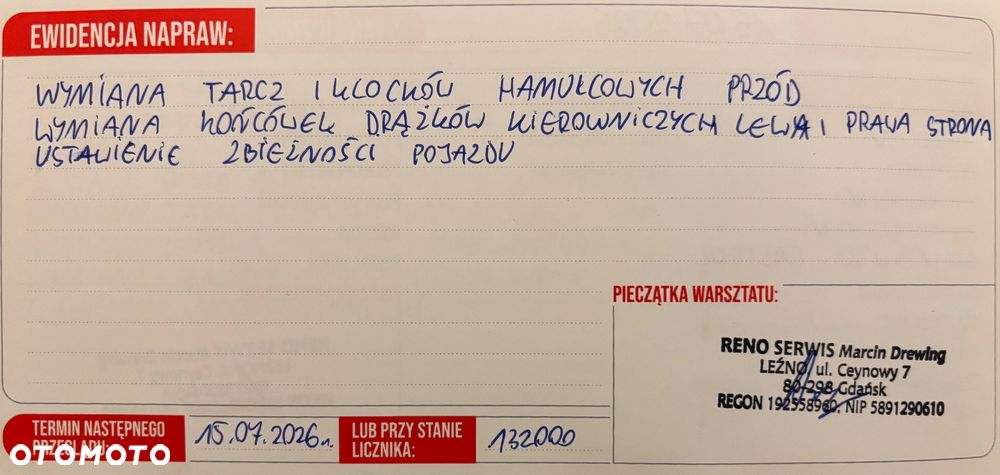 EWIDENCJA NAPRAW:
WYMIANA TARCZ I KLOCKÓW HAMULCOWYCH PRZÓD
WYMIANA KOŃCÓWEK DRĄŻKÓW KIEROWNICZYCH LEWA I PRAWA STRONA
USTAWIENIE ZBIEŻNOŚCI POJAZDU
PIECZĄTKA WARSZTATU:
RENO SERWIS Marcin Drewing
LEŹNO, ul. Ceynowy 7
80-298 Gdańsk
REGON 192558960, NIP 5891290610
TERMIN NASTĘPNEGO
PRZEGLĄDU:
15.07.2026r.
LUB PRZY STANIE
LICZNIKA:
132000
OTOMOTO